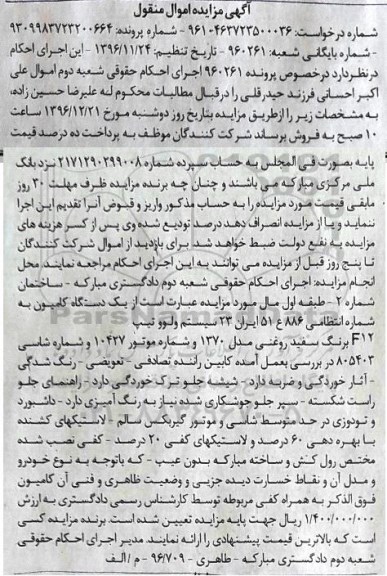 آگهی مزایده اموال منقول
شماره درخواست: ۹۶۱۰۴۶۳۷۲۳۵۰۰۰۳۶ - شماره پرونده: ۹۳۰۹۹۸۳۷۲۳۲۰۰۶۶۴
- شماره بایگانی شعبه: ۹۶۰۲۶۱ - تاریخ تنظیم: ۱۳۹۶/۱۱/۲۴ - این اجرای احکام
در نظر دارد درخصوص پرونده ۹۶۰۲۶۱ اجرای احکام حقوقی شعبه دوم اموال علی
اکبر احسانی فرزند حیدرقلی را درقبال مطالبات محکوم له علیرضا حسین زاده،
به مشخصات زیر را ازطریق مزایده بتاریخ روز دوشنبه مورخ ۱۳۹۶/۱۲/۲۱ ساعت
۱۰ صبح به فروش برساند شرکت کنندگان موظف به پرداخت ده درصد قیمت
پایه بصورت فی المجلس به حساب سپرده شماره ۲۱۷۱۲۹۰۲۹۹۰۰۸ نزد بانک
ملی مرکزی مبارکه می باشند و چنان چه برنده مزایده ظرف مهلت ۳۰ روز
مابقی قیمت مورد مزایده را به حساب مذکور واریز و قبوض آنرا تقدیم این اجرا
ننماید و یا از مزایده انصراف دهد درصد تودیع شده وی پس از کسر هزینه های
مزایده به نفع دولت ضبط خواهد شد. برای بازدید از اموال شرکت کنندگان
تا پنج روز قبل از مزایده می توانند به این اجرای احکام مراجعه نمایند. محل
انجام مزایده: اجرای احکام حقوقی شعبه دوم دادگستری مبارکه - ساختمان
شماره ۲ - طبقه اول مال مورد مزایده عبارت است از یک دستگاه کامیون به
شماره انتظامی ۸۸۶ ع ۵۱ ایران ۲۳ سیستم ولوو تیپ
F۱۲ برنگ سفید روغنی مدل ۱۳۷۰ و شماره موتور ۱۰۴۲۷ و شماره شاسی
۸۰۵۴۰۳ در بررسی بعمل آمده کابین راننده تصادفی - تعویضی - رنگ شدگی
- آثار خوردگی و ضربه دارد - شیشه جلو ترک خوردگی دارد - راهنمای جلو
راست شکسته - سپر جلو جوشکاری شده نیاز به رنگ آمیزی دارد - داشبورد
و تودوزی در حد متوسط شاسی و موتور گیربکس سالم - لاستیکهای کشنده
با بهره دهی ۶۰ درصد و لاستیکهای کفی ۲۰ درصد - کفی نصب شده
مختص رول کش و ساخته مبارکه بدون عیب - که باتوجه به نوع خودرو
و مدل آن و نقاط خسارت دیده جزیی و وضعیت ظاهری و فنی آن کامیون
فوق الذکر به همراه کفی مربوطه توسط کارشناس رسمی دادگستری به ارزش
۱/۴۰۰/۰۰۰/۰۰۰ ریال جهت پایه مزایده تعیین شده است. برنده مزایده کسی
است که بالاترین قیمت پیشنهادی را ارائه نمایند. مدیر اجرای احکام حقوقی
شعبه دوم دادگستری مبارکه - طاهری - ۹۶/۷۰۹ - م / الف